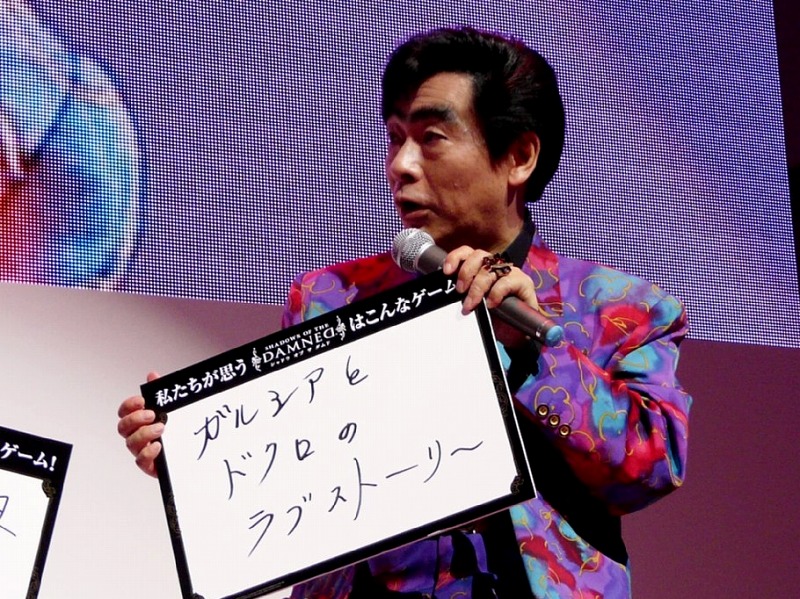 私たちが思う SHADOWS OF THE DAMNED シャドウ オブ ザ ダムド はこんなゲーム
ガルシアと
ドクロの
ラブストーリ～
ゲーム!